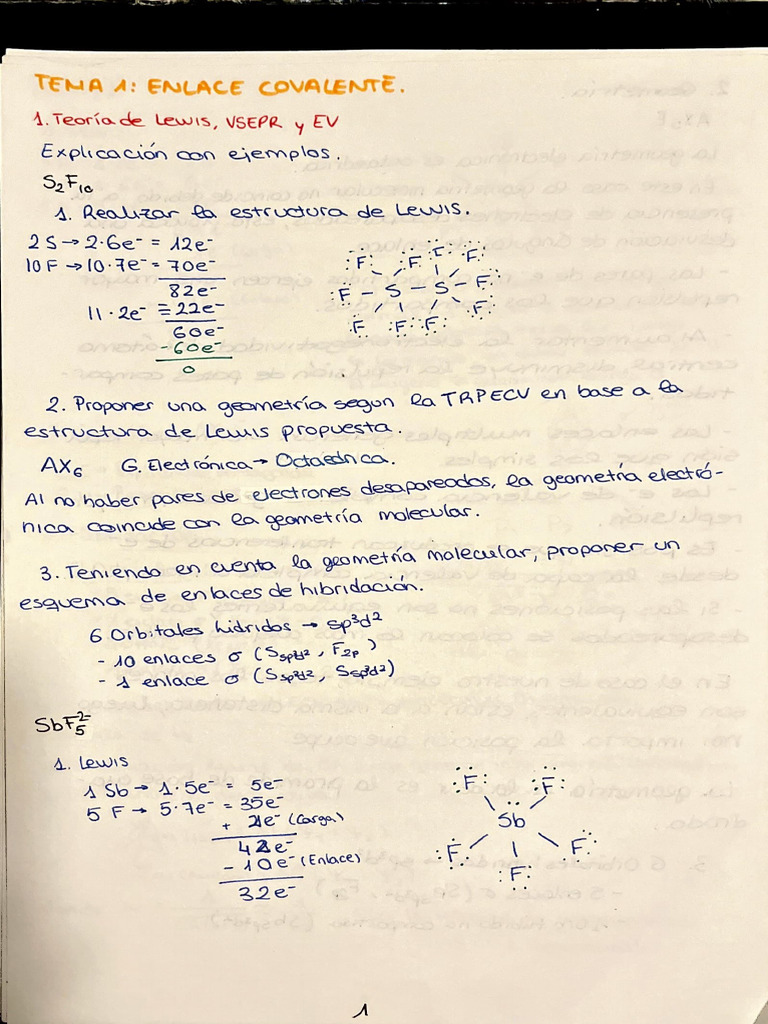 TEMA 1: ENLACE COVALENTE.
1. Teoría de Lewis, VSEPR y EV
Explicación con ejemplos.
S₂F₁₀
1. Realizar la estructura de Lewis.
2 S → 2·6e⁻ = 12e⁻
10 F → 10·7e⁻ = 70e⁻
82e⁻
11·2e⁻ = 22e⁻
60e⁻
-60e⁻
0
F F F F
F – S – S – F
F F F F
2. Proponer una geometría segun la TRPECV en base a la
estructura de Lewis propuesta.
AX₆ G. Electrónica → Octaédrica.
Al no haber pares de electrones desapareados, la geometría electró-
nica coincide con la geometría molecular.
3. Teniendo en cuenta la geometría molecular, proponer un
esquema de enlaces de hibridación.
6 Orbitales hídridos → sp³d²
- 10 enlaces σ (Ssp³d², F2p)
- 1 enlace σ (Ssp³d², Ssp³d²)
SbF₅²⁻
1. Lewis
1 Sb → 1·5e⁻ = 5e⁻
5 F → 5·7e⁻ = 35e⁻
+ 2e⁻ (Carga)
42e⁻
- 10e⁻ (Enlace)
32e⁻
F F
Sb
F F F
1